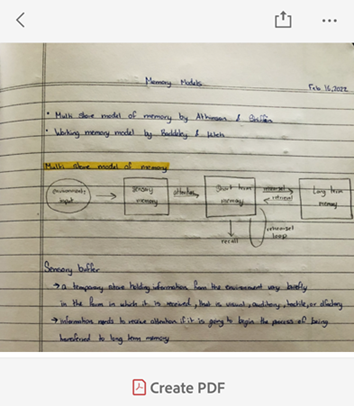 Memory Models
Feb 16, 2022
• Multi store model of memory by Atkinson &
• Working memory model by Baddeley & Hitch
Multi store model of memory
environmental
input
sensory
memory
attention
Short term
memory
rehearsal
retrieval
Long term
memory
recall
rehearsal
loop
Sensory buffer
→ a temporary store holding information from the environment very briefly
in the form in which it is received, that is visual, auditory, tactile, or olfactory
→ information needs to receive attention if it is going to begin the process of being
transferred to long term memory
Create PDF